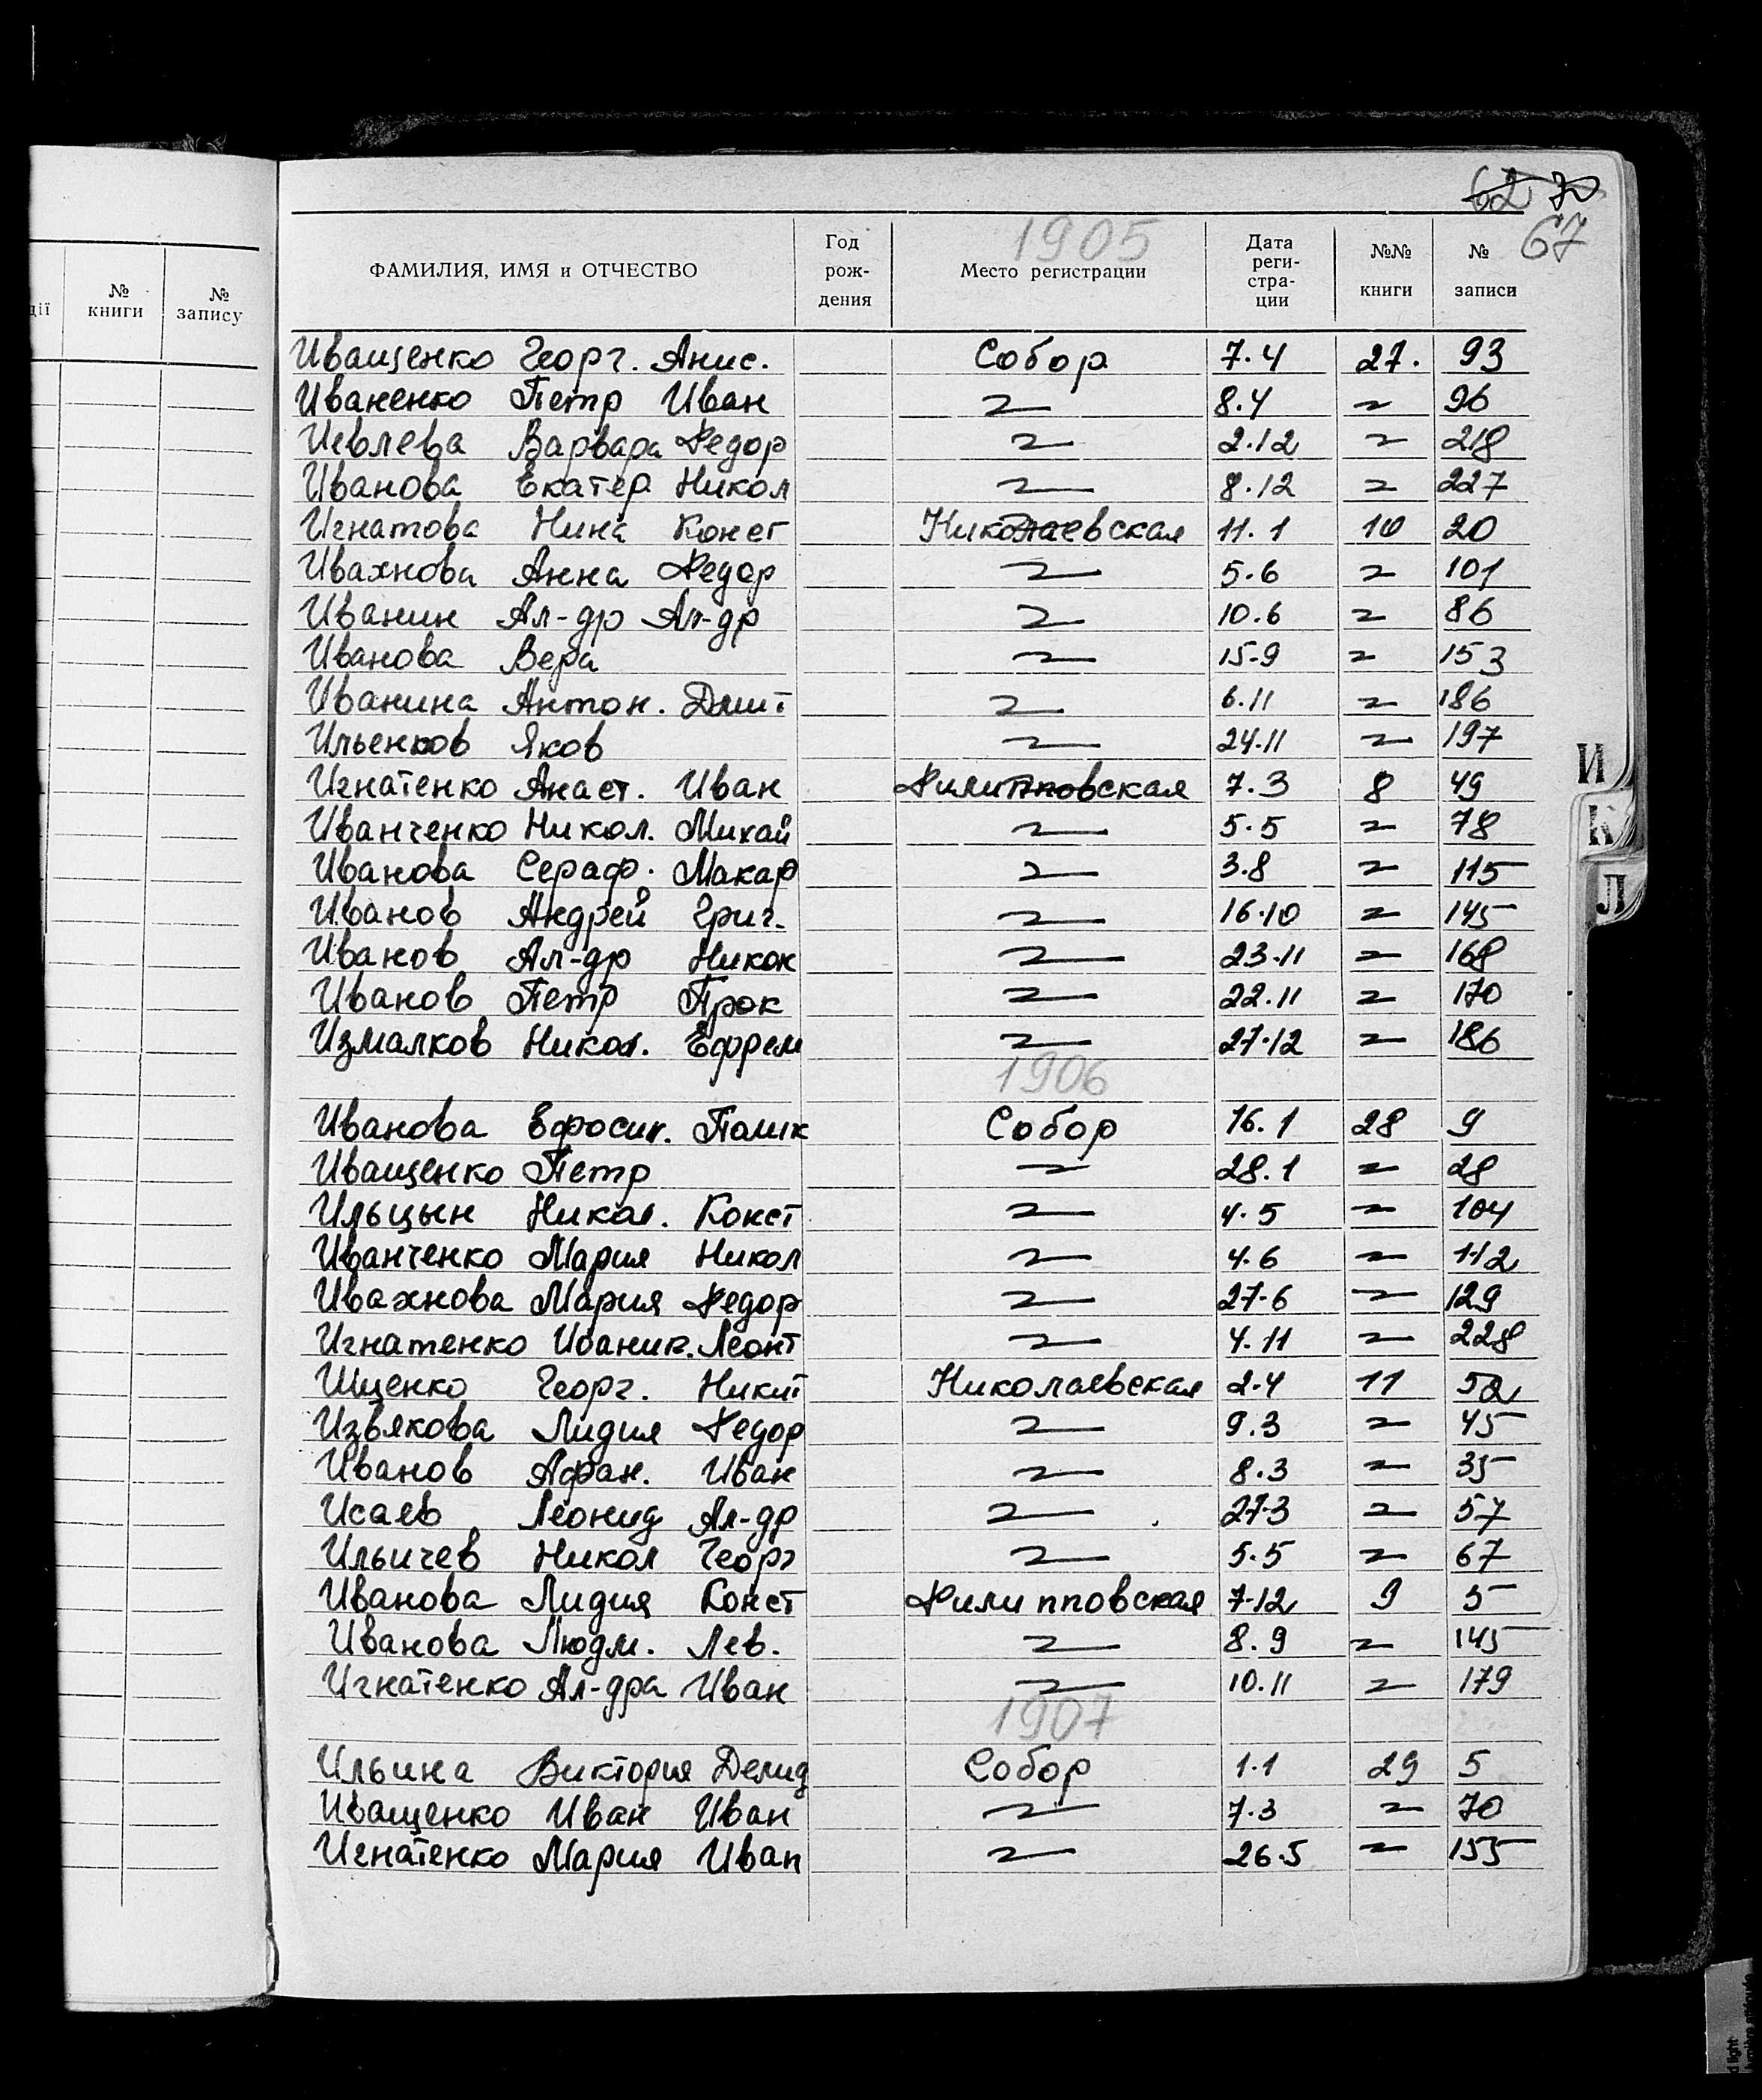 62 70
67
дії
№ книги
№ запису
ФАМИЛИЯ, ИМЯ и ОТЧЕСТВО
Год рож- дения
1905
Место регистрации
Дата реги- стра- ции
№№ книги
№ записи
Иващенко Георг. Анис. Собор 7.4 27. 93
Иваненко Петр Иван 〃 8.4 〃 96
Иевлева Варвара Федор 〃 2.12 〃 218
Иванова Екатер Никол 〃 8.12 〃 227
Игнатова Нина Конст Николаевская 11.1 10 20
Ивахнова Анна Федор 〃 5.6 〃 101
Иванин Ал-др Ал-др 〃 10.6 〃 86
Иванова Вера 〃 15.9 〃 153
Иванина Антон. Дмит 〃 6.11 〃 186
Ильенков Яков 〃 24.11 〃 197
Игнатенко Анаст. Иван Филипповская 7.3 8 49
Иванченко Никол. Михай 〃 5.5 〃 78
Иванова Сераф. Макар 〃 3.8 〃 115
Иванов Андрей Григ. 〃 16.10 〃 145
Иванов Ал-др Никон 〃 23.11 〃 168
Иванов Петр Прок 〃 22.11 〃 170
Измалков Никол. Ефрем 〃 27.12 〃 186
1906
Иванова Ефосин. Собор 16.1 28 9
Иващенко Петр 〃 28.1 〃 28
Ильцын Никол. Конст 〃 4.5 〃 104
Иванченко Мария Никол 〃 4.6 〃 112
Ивахнова Мария Федор 〃 27.6 〃 129
Игнатенко Иоаник. Леонт 〃 4.11 〃 228
Ищенко Георг. Никит Николаевская 2.4 11 52
Извякова Лидия Федор 〃 9.3 〃 45
Иванов Афан. Иван 〃 8.3 〃 35
Исаев Леонид Ал-др 〃 27.3 〃 57
Ильичев Никол Георг 〃 5.5 〃 67
Иванова Лидия Конст Филипповская 7.12 9 5
Иванова Людм. Лев. 〃 8.9 〃 145
Игнатенко Ал-дра Иван 〃 10.11 〃 179
1907
Ильина Виктория Демид Собор 1.1 29 5
Иващенко Иван Иван 〃 7.3 〃 70
Игнатенко Мария Иван 〃 26.5 〃 155
И
К
Л